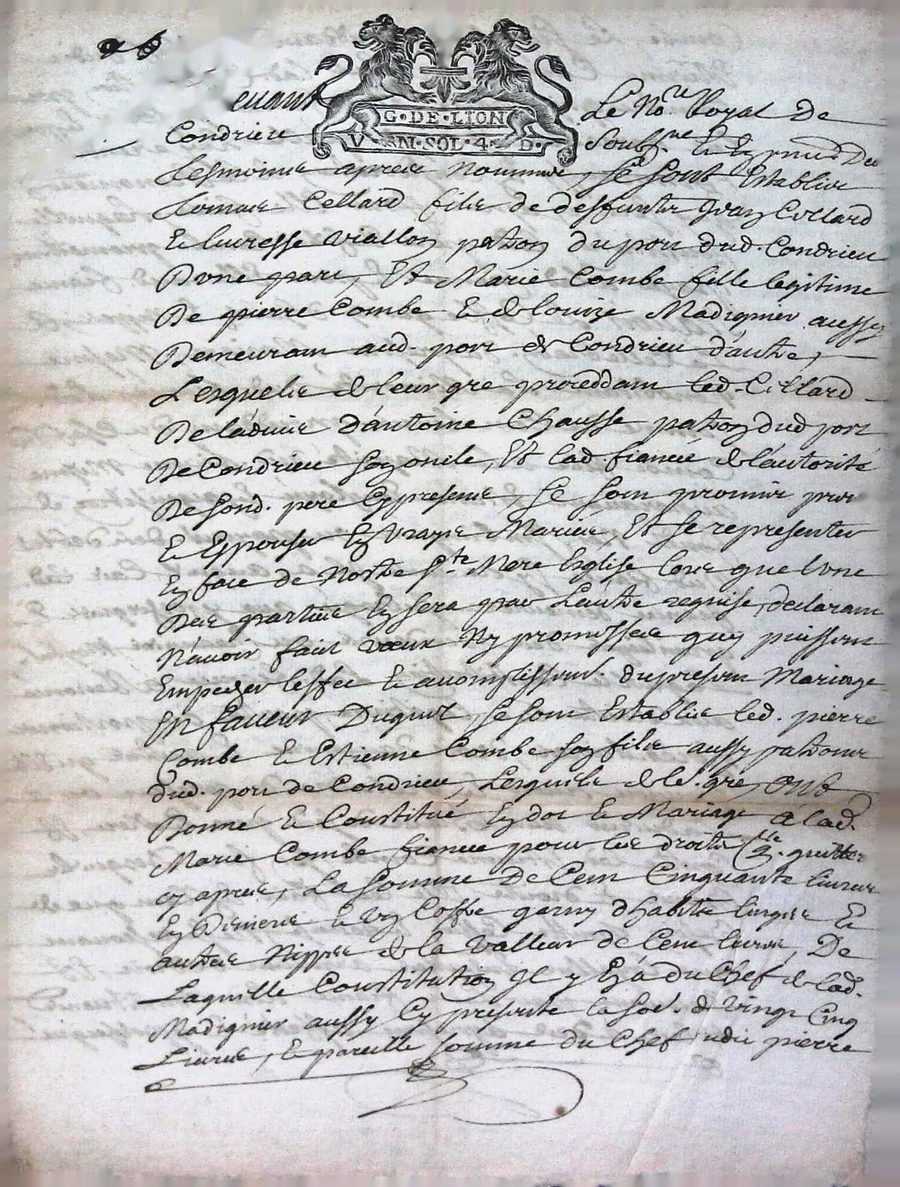 G·DE·LION
V N·SOL·4·D·
evant Le No.re Royal de
Condrieu Soubz.ne &
tesmoins apres nommés, se sont establis
Cellard fils de deffuncts Jean Cellard
& lucresse Viallon patron du port dud. Condrieu
D'une part, Et Marie Combe fille legitime
De pierre Combe & de louize Madignier aussy
Demeurant aud. port de Condrieu d'autre,
Lesquels de leur gré proceddant led. Cellard
De l'advis d'Antoine Chausse patron dud port
De Condrieu son oncle, Et lad fiancée de l'autorité
De sond. pere cy present, se sont promis prendre
& Espouser En vrays Mariés, Et se representer
En face de Nostre S.te Mere Esglise lors que l'une
Des parties En sera par l'autre requise, declarant
N'avoir faict vœux Ny promesses quy puissent
Empecher l'effet & accomplissem.t du present Mariage
En faveur Duquel, se sont establis led. pierre
Combe & Estienne Combe son fils aussy patrons
dud. port de Condrieu, Lesquels de le.r gré, ont
Donné & Constitué En dot & Mariage à lad.
Marie Combe fiancée pour les droits
cy apres, La somme De Cent Cinquante livres
En Deniers & un Coffre garny d'habits linges &
autres Nippes de la Valleur de Cent livres, De
Laquelle Constitution Il y En à du Chef de lad.
Madignier aussy Cy presente la so.e de Vingt Cinq
Livres, & pareille somme du Chef dud. pierre